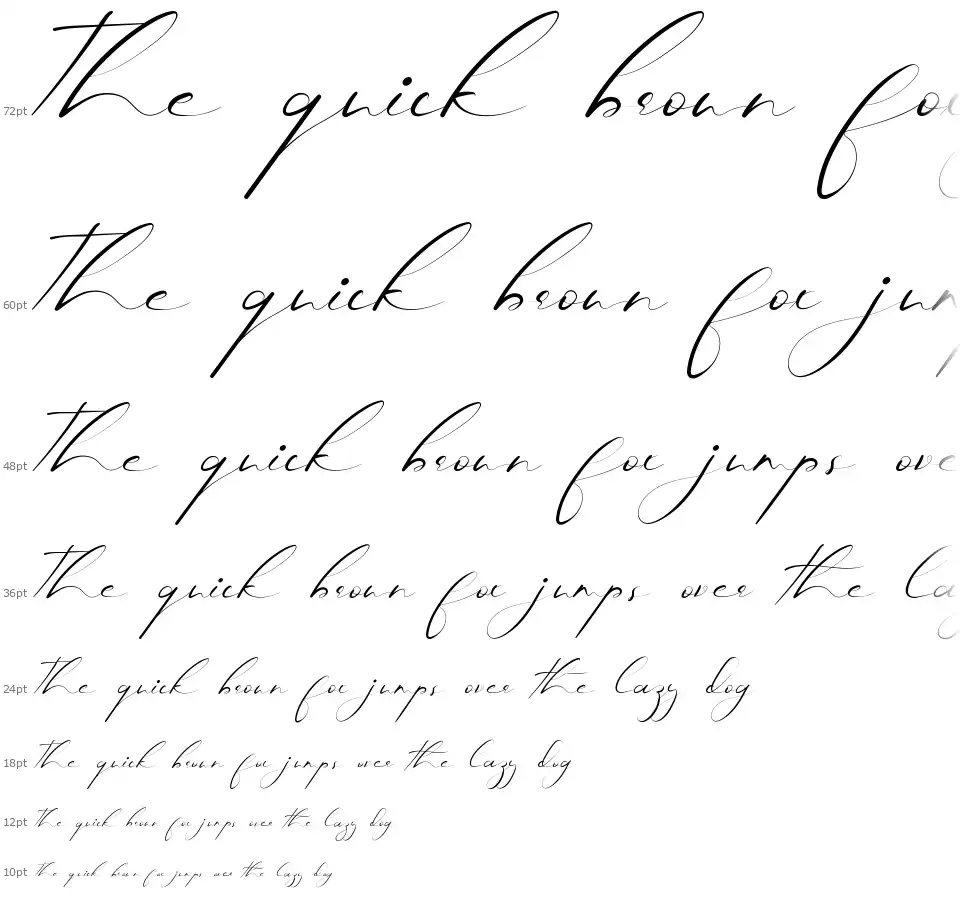 72pt the quick brown fox
60pt the quick brown fox jum
48pt the quick brown fox jumps over
36pt the quick brown fox jumps over the la
24pt the quick brown fox jumps over the lazy dog
18pt the quick brown fox jumps over the lazy dog
12pt the quick brown fox jumps over the lazy dog
10pt the quick brown fox jumps over the lazy dog